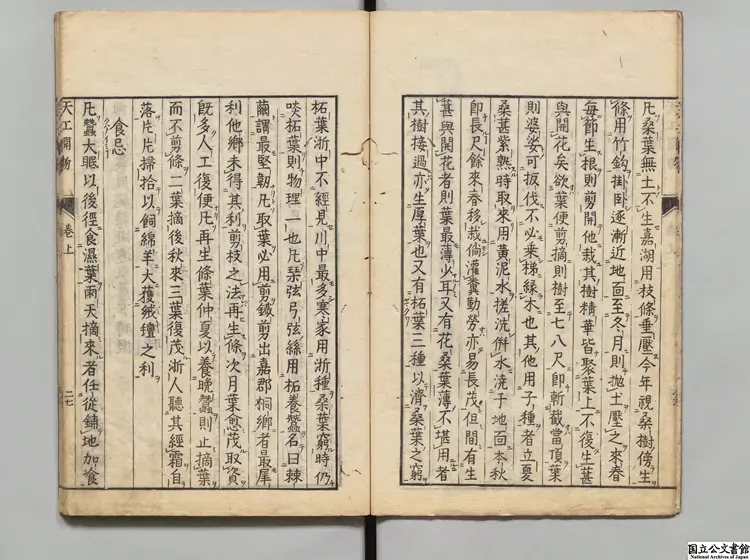 凡桑葉無土不生嘉湖用枝條垂壓今年視桑樹傍生
條用竹鈎掛臥逐漸近地面至冬月則抛土壓之來春
每節生根則剪開他栽其樹精華皆聚葉上不復生葚
與開花矣欲葉便剪摘則樹至七八尺即斬截當頂葉
則婆娑可扳伐不必乗梯緣木也其他用子種者立夏
桑葚紫熟時取來用黄泥水搓洗併水澆于地面本秋
即長尺餘來春移栽倘灌糞勤勞亦易長茂但間有生
葚與開花者則葉最薄少耳又有花桑葉薄不堪用者
其樹接過亦生厚葉也又有柘葉三種以濟桑葉之窮
柘葉浙中不經見川中最多寒家用浙種桑葉窮時仍
啖柘葉則物理一也凡琴弦弓弦絲用柘養蠶名曰棘
繭謂最堅韌凡取葉必用剪鐵剪出嘉郡桐鄉者最犀
利他鄉未得其利剪枝之法再生條次月葉愈茂取資
旣多人工復便凡再生條葉仲夏以養晩蠶則止摘葉
而不剪條二葉摘後秋來三葉復茂浙人聽其經霜自
落片片掃拾以飼綿羊大獲絨氊之利
食忌
凡蠶大眠以後徑食濕葉雨天摘來者任從鋪地加飡
天工開物
卷上
二七
国立公文書館
National Archives of Japan